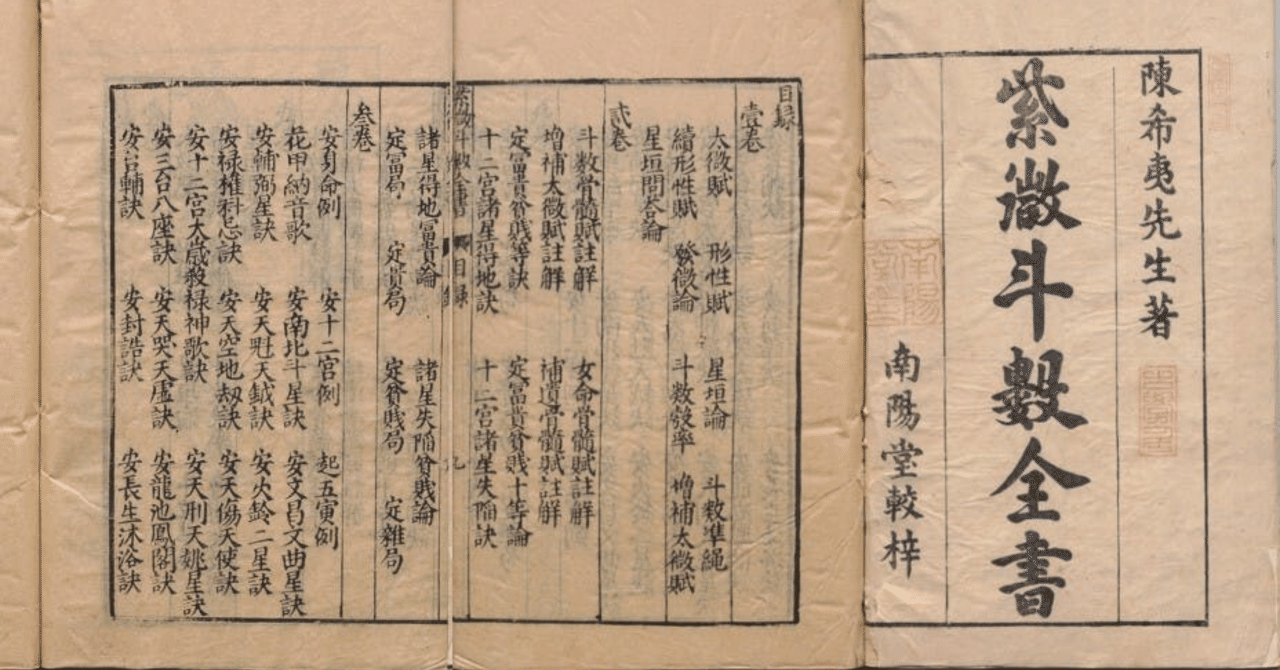 陳希夷先生著
紫微斗數全書
南陽堂較梓
目録
壹卷
太微賦 形性賦 星垣論 斗数準繩
續形性賦 發微論 斗数彀率 增補太微賦
星垣問荅論
貳卷
斗数骨髓賦註解 女命骨髓賦註解
增補太微賦註解 補遺骨髓賦註解
定富貴貧賤等訣 定富貴貧賤十等論
十二宫諸星得地訣 十二宫諸星失陥訣
紫微斗数全書 目録
諸星得地富貴論 諸星失陥貧賤論
定富局 定貴局 定貧賤局 定雜局
叅卷
安身命例 安十二宫例 起五寅例
花甲納音歌 安南北斗星訣 安文昌文曲星訣
安輔弼星訣 安天魁天鉞訣 安火鈴二星訣
安禄權科忌訣 安天空地刼訣 安天傷天使訣
安十二宫太歲殺禄神歌訣 安天刑天姚星訣
安三台八座訣 安天哭天虚訣 安龍池鳳閣訣
安台輔訣 安封誥訣 安長生沐浴訣